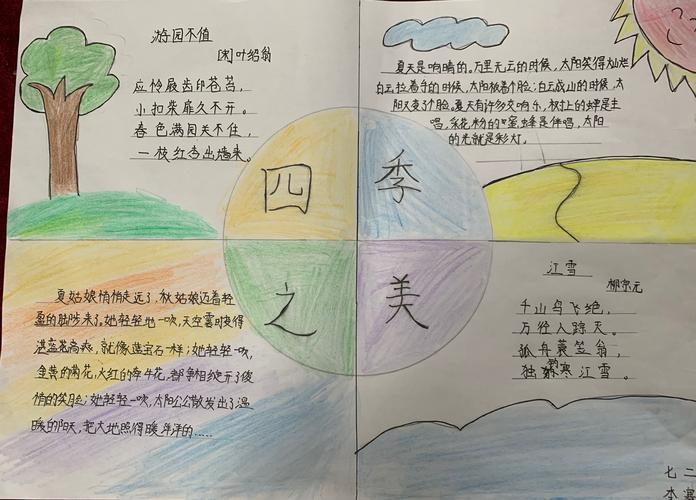 游园不值
[宋]叶绍翁
应怜屐齿印苍苔，
小扣柴扉久不开。
春色满园关不住，
一枝红杏出墙来。
夏天是晴的。万里无云的时候，太阳笑得灿烂
白云拉着手的时候，太阳板着个脸；白云成山的时候，太
阳又变个脸。夏天有许多交响乐，树上的蝉是主
唱，采花粉的蜜蜂是伴唱，太阳
的光就是彩灯。
四 季
之 美
夏姑娘悄悄走远了，秋姑娘迈着轻
盈的脚步来了。她轻轻地一吹，天空霎时变得
湛蓝湛蓝，就像蓝宝石一样；她轻轻一吹，
金黄的菊花，大红的牵牛花，都争相绽开了俊
俏的笑脸；她轻轻一吹，太阳公公散发出了温
暖的阳光，把大地照得暖洋洋的……
江雪
柳宗元
千山鸟飞绝，
万径人踪灭。
孤舟蓑笠翁，
独钓寒江雪。
七二